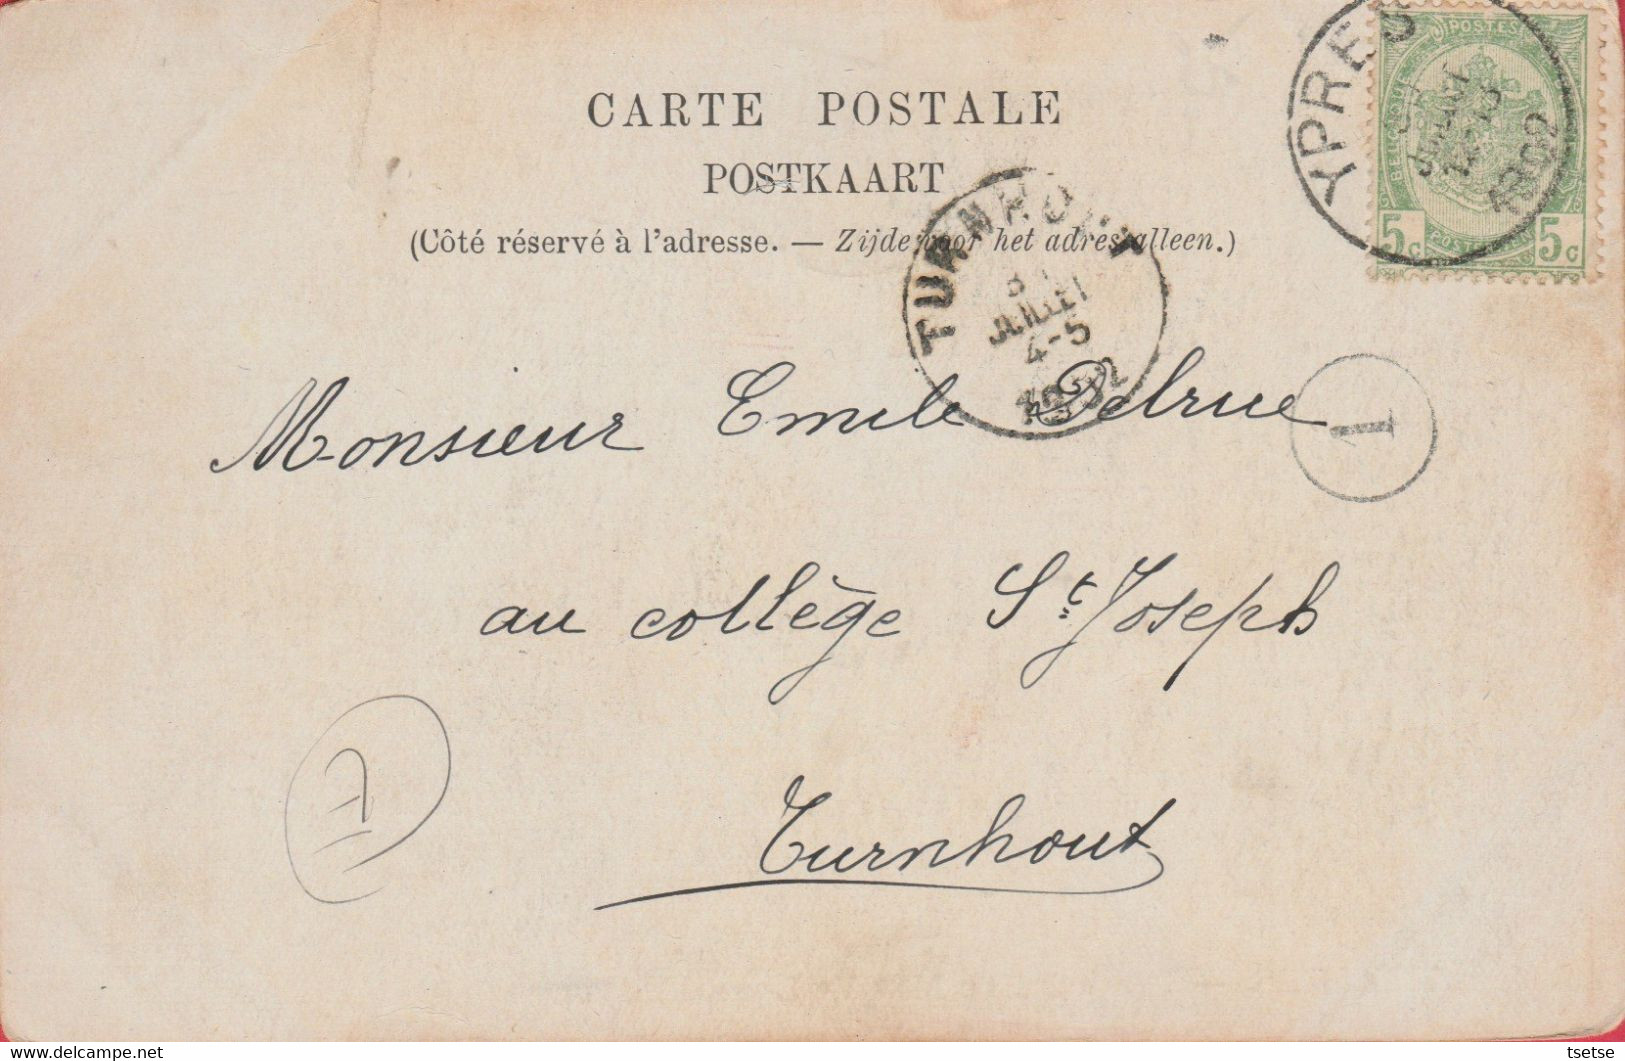 CARTE POSTALE
POSTKAART
(Côté réservé à l'adresse. — Zijde voor het adres alleen.)
YPRES
1902
POSTES
5c 5c
TURNHOUT
JUILLET
4-5
1902
Monsieur Emile Delrue
1
au collège St Joseph
Turnhout
tsetse